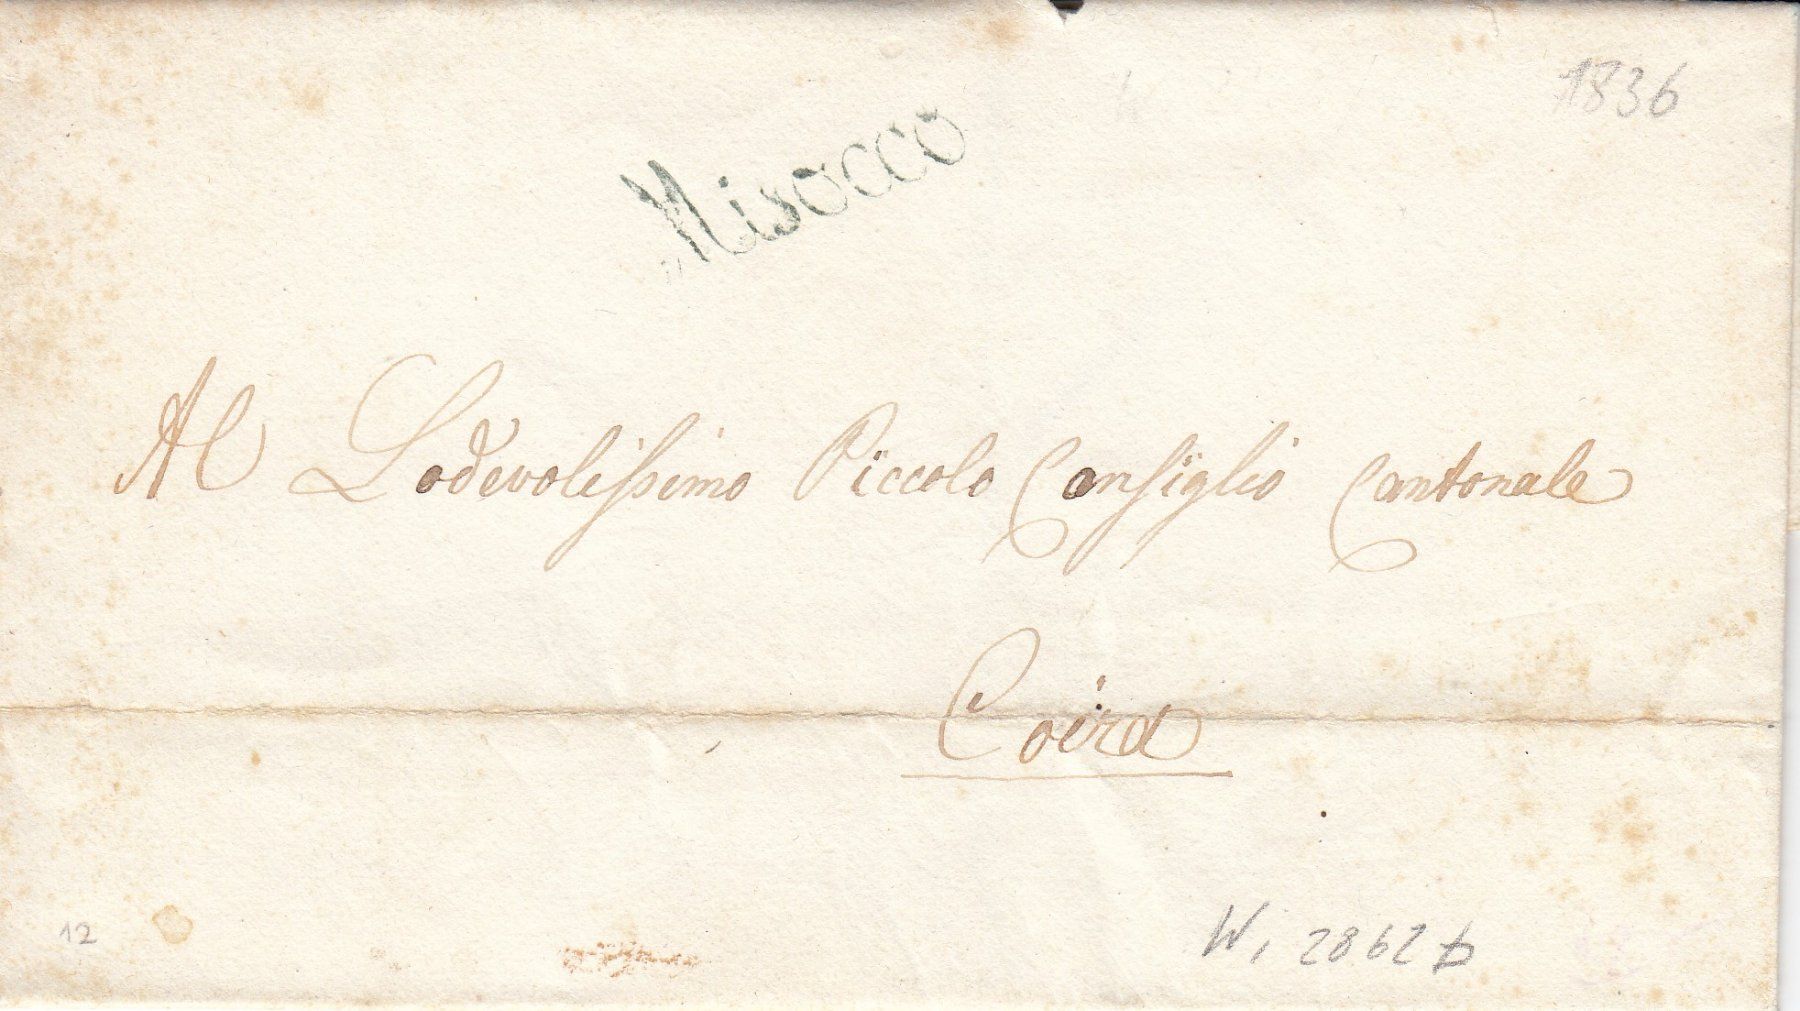 1836
Misocco
Al Lodevolissimo Piccolo Consiglio Cantonale
Coira
12
Wi 2862 b